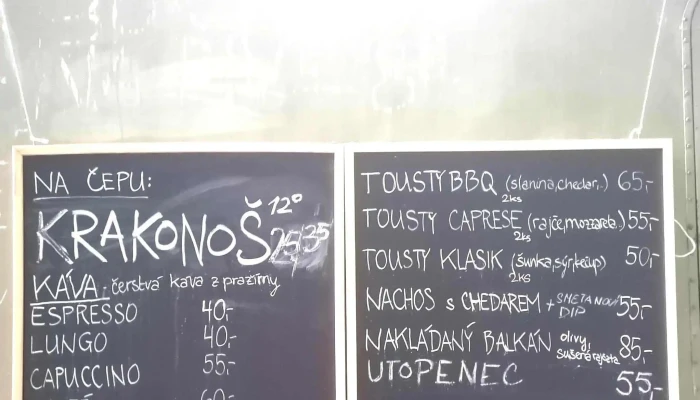 NA ČEPU:
KRAKONOŠ 12° 25/35
KÁVA: čerstvá káva z pražírny
ESPRESSO 40,-
LUNGO 40,-
CAPUCCINO 55,-
60,-
TOUSTY BBQ (slanina, chedar,.) 65,-
2ks
TOUSTY CAPRESE (rajče, mozzarela.) 55,-
2ks
TOUSTY KLASIK (šunka, sýr, kečup) 50,-
2ks
NACHOS s CHEDAREM + SMETANOVÝ DIP 55,-
NAKLÁDANÝ BALKÁN olivy, sušené rajčata 85,-
UTOPENEC 55,-